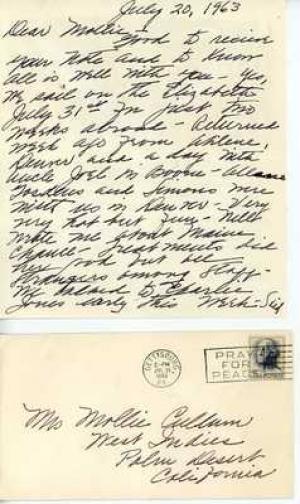 July 20, 1963
Dear Mollie -
Good to receive
your note and to know
all is well with you - yes,
We sail on the Elizabeth
July 31st for just two
weeks abroad - Returned
week ago from Abilene,
Denver and a day with
Uncle Joel in Boone -
and were
with us in Denver - Very
very hot but fun -
wrote me about Maine
Chance treatments did
good but all
strangers among staff -
to Charlie
Jones early this week -
GETTYSBURG
PM
PRAY
FOR
PEACE
Mrs Mollie Cullum
West Indies
Palm Desert
California